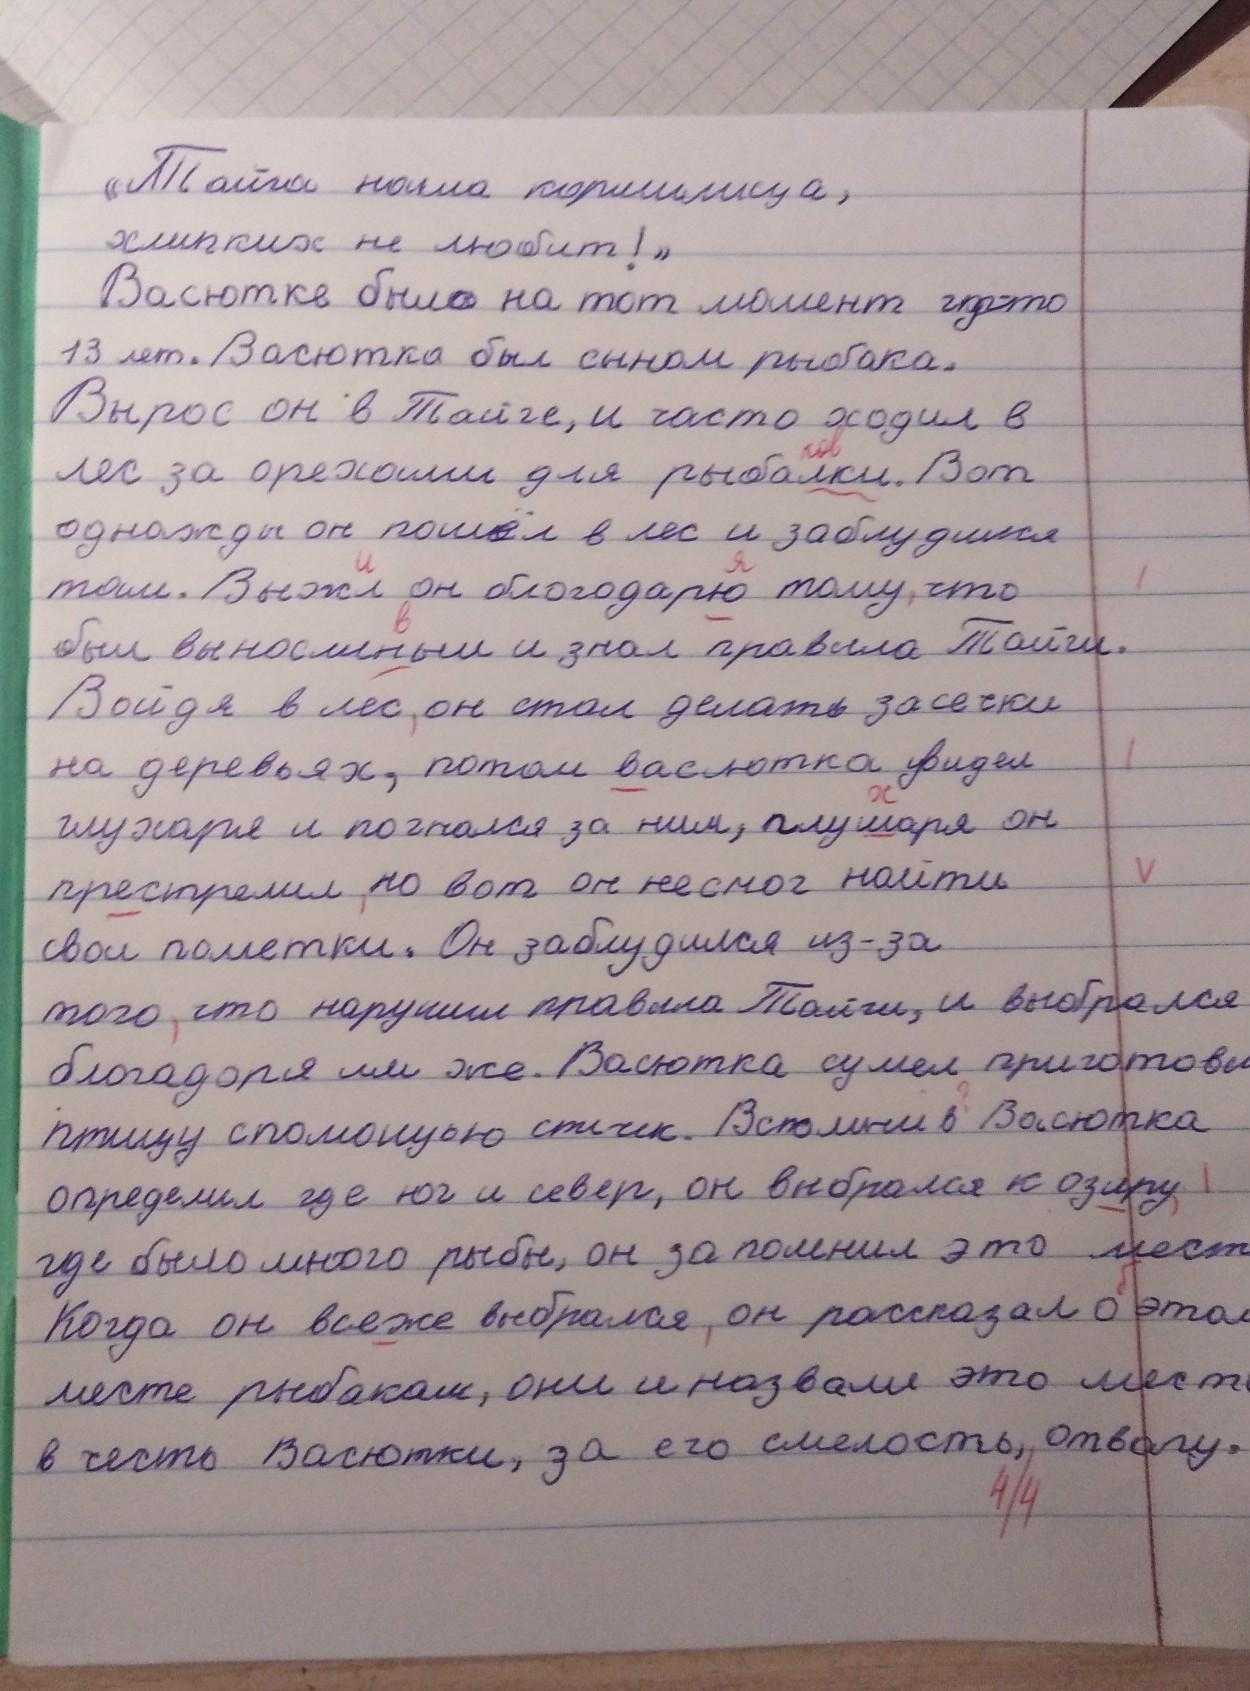 «Тайга наша кормилица,
хлипких не любит!»
Васютке было на тот момент где-то
13 лет. Васютка был сыном рыбака.
Вырос он в Тайге, и часто ходил в
лес за орехами для рыбалки. Вот
ков
однажды он пошёл в лес и заблудился
там. Выжл он благодарю тому, что
и я
был выносленым и знал правила Тайги.
в
Войдя в лес, он стал делать засечки
на деревьях, потом васлютка увидел
глухаря и погнался за ним, глушаря он
х
престрелил, но вот он несмог найти
свои пометки. Он заблудился из-за
того, что нарушил правила Тайги, и выбрался
блогадоря им же. Васютка сумел приготови
птицу спомощью спичек. Вспомнив Васютка
?
определил где юг и север, он выбрался к озиру,
где было много рыбы, он запомнил это мест
Когда он всеже выбрался, он рассказал о этом
б
месте рыбакам, они и назвали это место
в честь Васютки, за его смелость, отвагу.
4/4